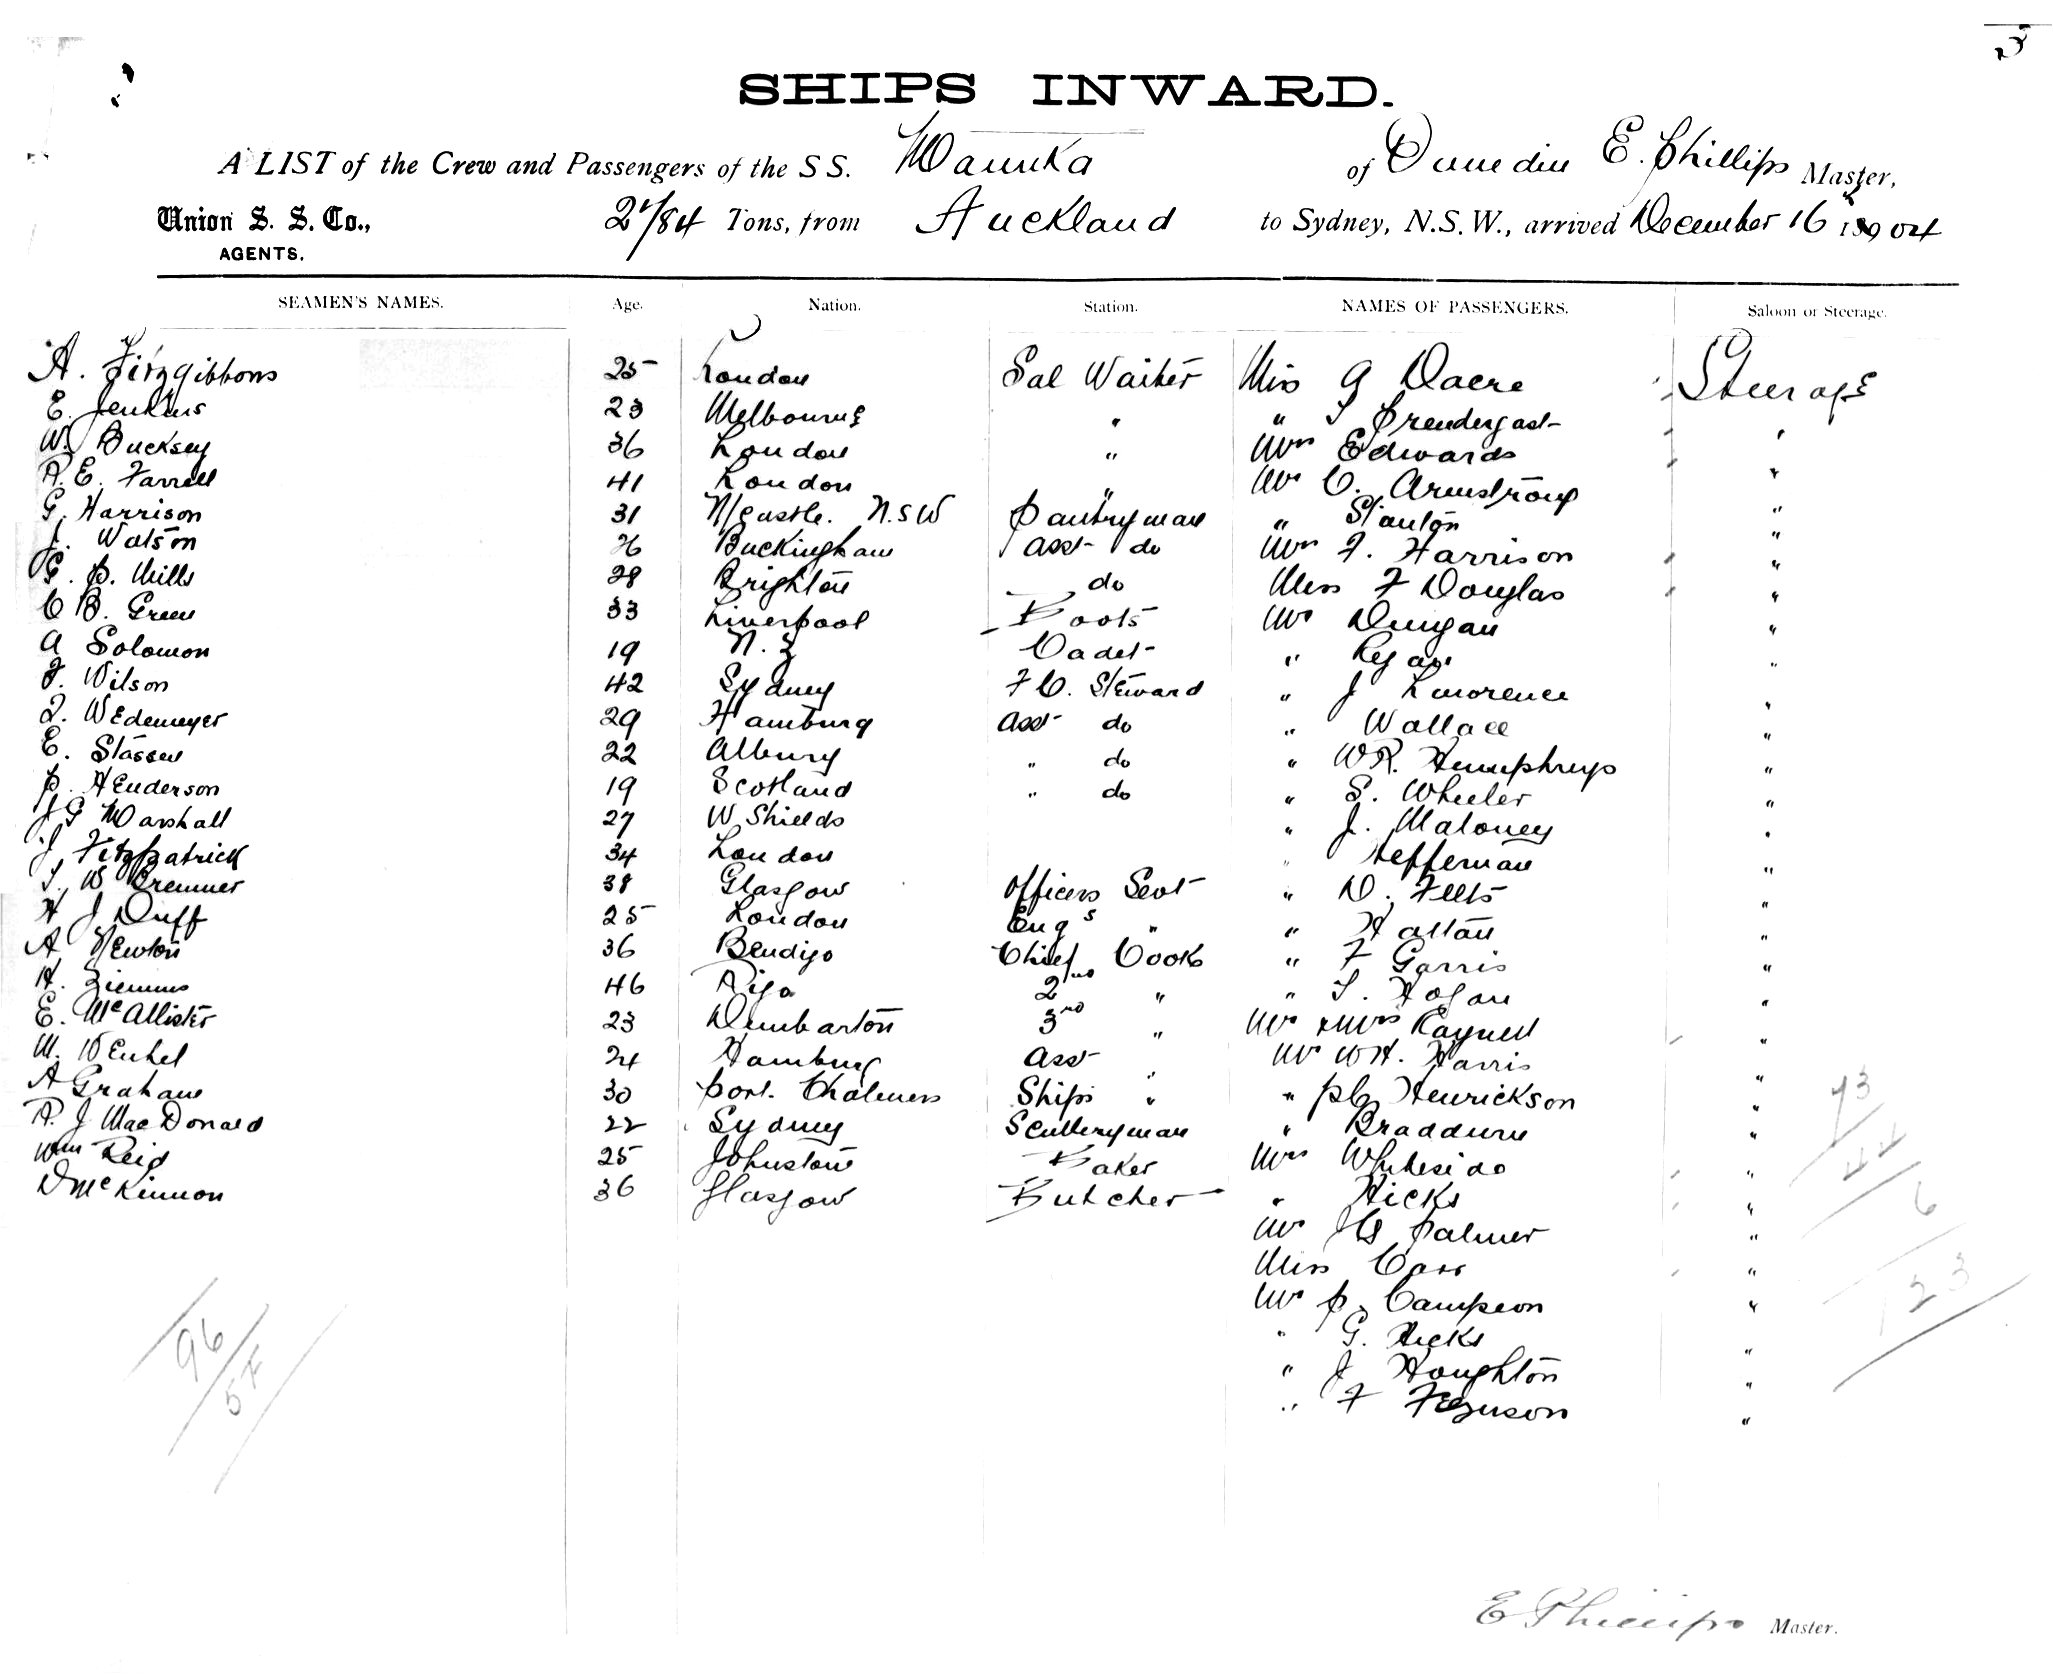 SHIPS INWARD.
A LIST of the Crew and Passengers of the S S. Manuka of Dunedin E. Phillips Master,
Union S. S. Co., 2184 Tons, from Auckland to Sydney, N.S.W., arrived December 16 1904
AGENTS.
SEAMEN'S NAMES. Age. Nation. Station. NAMES OF PASSENGERS. Saloon or Steerage.
A. Fitzgibbons 25 London Sal Waiter Miss G Dacre Steerage
E. Jenkins 23 Melbourne " " Prendergast "
W. Bucksey 36 London " Mrs Edwards "
R. E. Farrell 41 London " Mr C. Armstrong "
G. Harrison 31 N/castle. N.S.W Pantryman " Stanton "
J. Watson 26 Buckingham Asst do Mrs F. Harrison "
G. P. Mills 28 Brighton do Miss F Douglas "
C B. Green 33 Liverpool Boots Mr Dungan "
A Solomon 19 N. Z Cadet " Regan "
F. Wilson 42 Sydney F C. Steward " J Lawrence "
Wedemeyer 29 Hamburg Asst do " Wallace "
E. Stassen 22 Albury " do " W R. Humphreys "
P. Henderson 19 Scotland " do " S. Wheeler "
J G Marshall 27 W Shields " J. Maloney "
J Fitzpatrick 34 London " Heffernan "
T. W Bremner 38 Glasgow Officers Sevt " D. Felts "
H J Duff 25 London Engs " " Hattan "
A Newton 36 Bendigo Chief Cook " F Garris "
H. Ziemms 46 Riga 2nd " " T. Hogan "
E. McAllister 23 Dumbarton 3rd " Mr & Mrs Raynell "
M. Wenkel 24 Hamburg Asst " Mr W H. Harris "
A Graham 30 Port. Chalmers Ships " " Henrickson "
R. J MacDonald 22 Sydney Scullery man " Braddurn "
Wm Reid 25 Johnstone Baker Mrs Whiteside "
D McKinnon 36 Glasgow Butcher " Hicks "
Mr Palmer "
Miss Carr "
Mr P. Campeon "
" G. Hicks "
" J Houghton "
" F Ferguson "
73
44
6
123
96
5F
E Phillips Master.